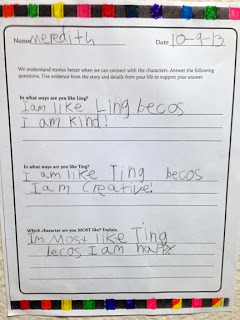 Name meredith Date 10-9-13
We understand stories better when we can connect with the characters. Answer the following
questions. Use evidence from the story and details from your life to support your answer.
In what ways are you like Ling?
I am like Ling becos
I am kind!
In what ways are you like Ting?
I am like Ting becos
I am creative!
Which character are you MOST like? Explain.
Im Most like Ting
becos I am happy